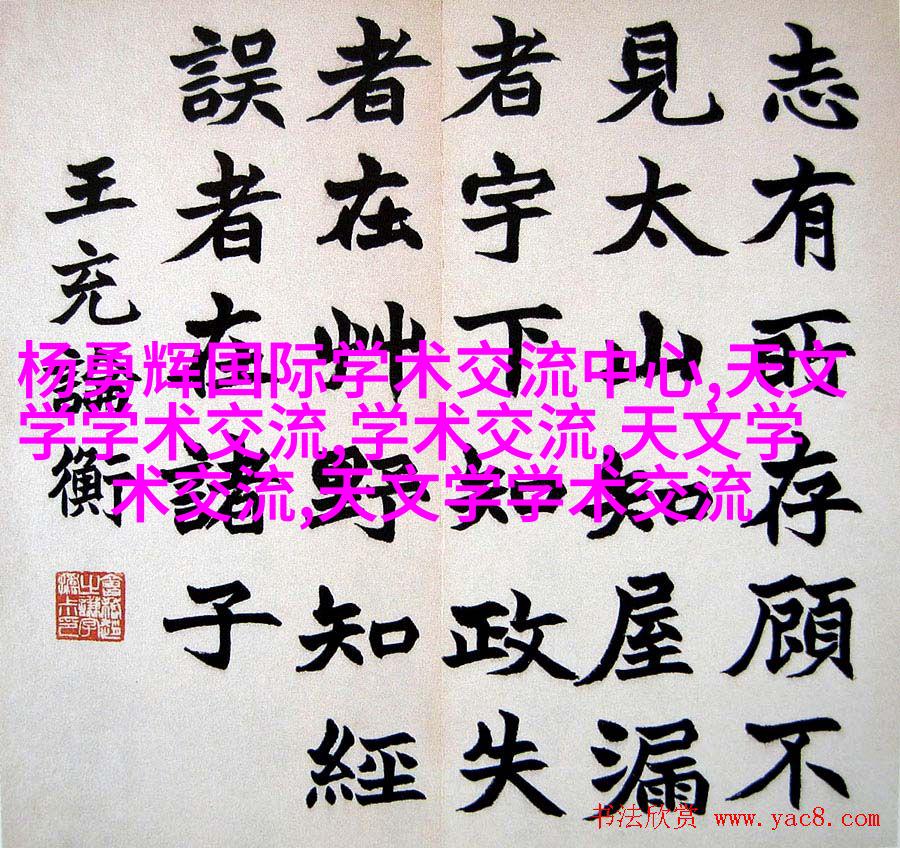 志有所存顧不
見太山知屋漏
者宇下知政失
者在艸野知經
誤者在諸子
王充論衡
杨勇辉国际学术交流中心,天文
学学术交流,学术交流,天文学
术交流,天文学学术交流
书法欣赏 www.yac8.com